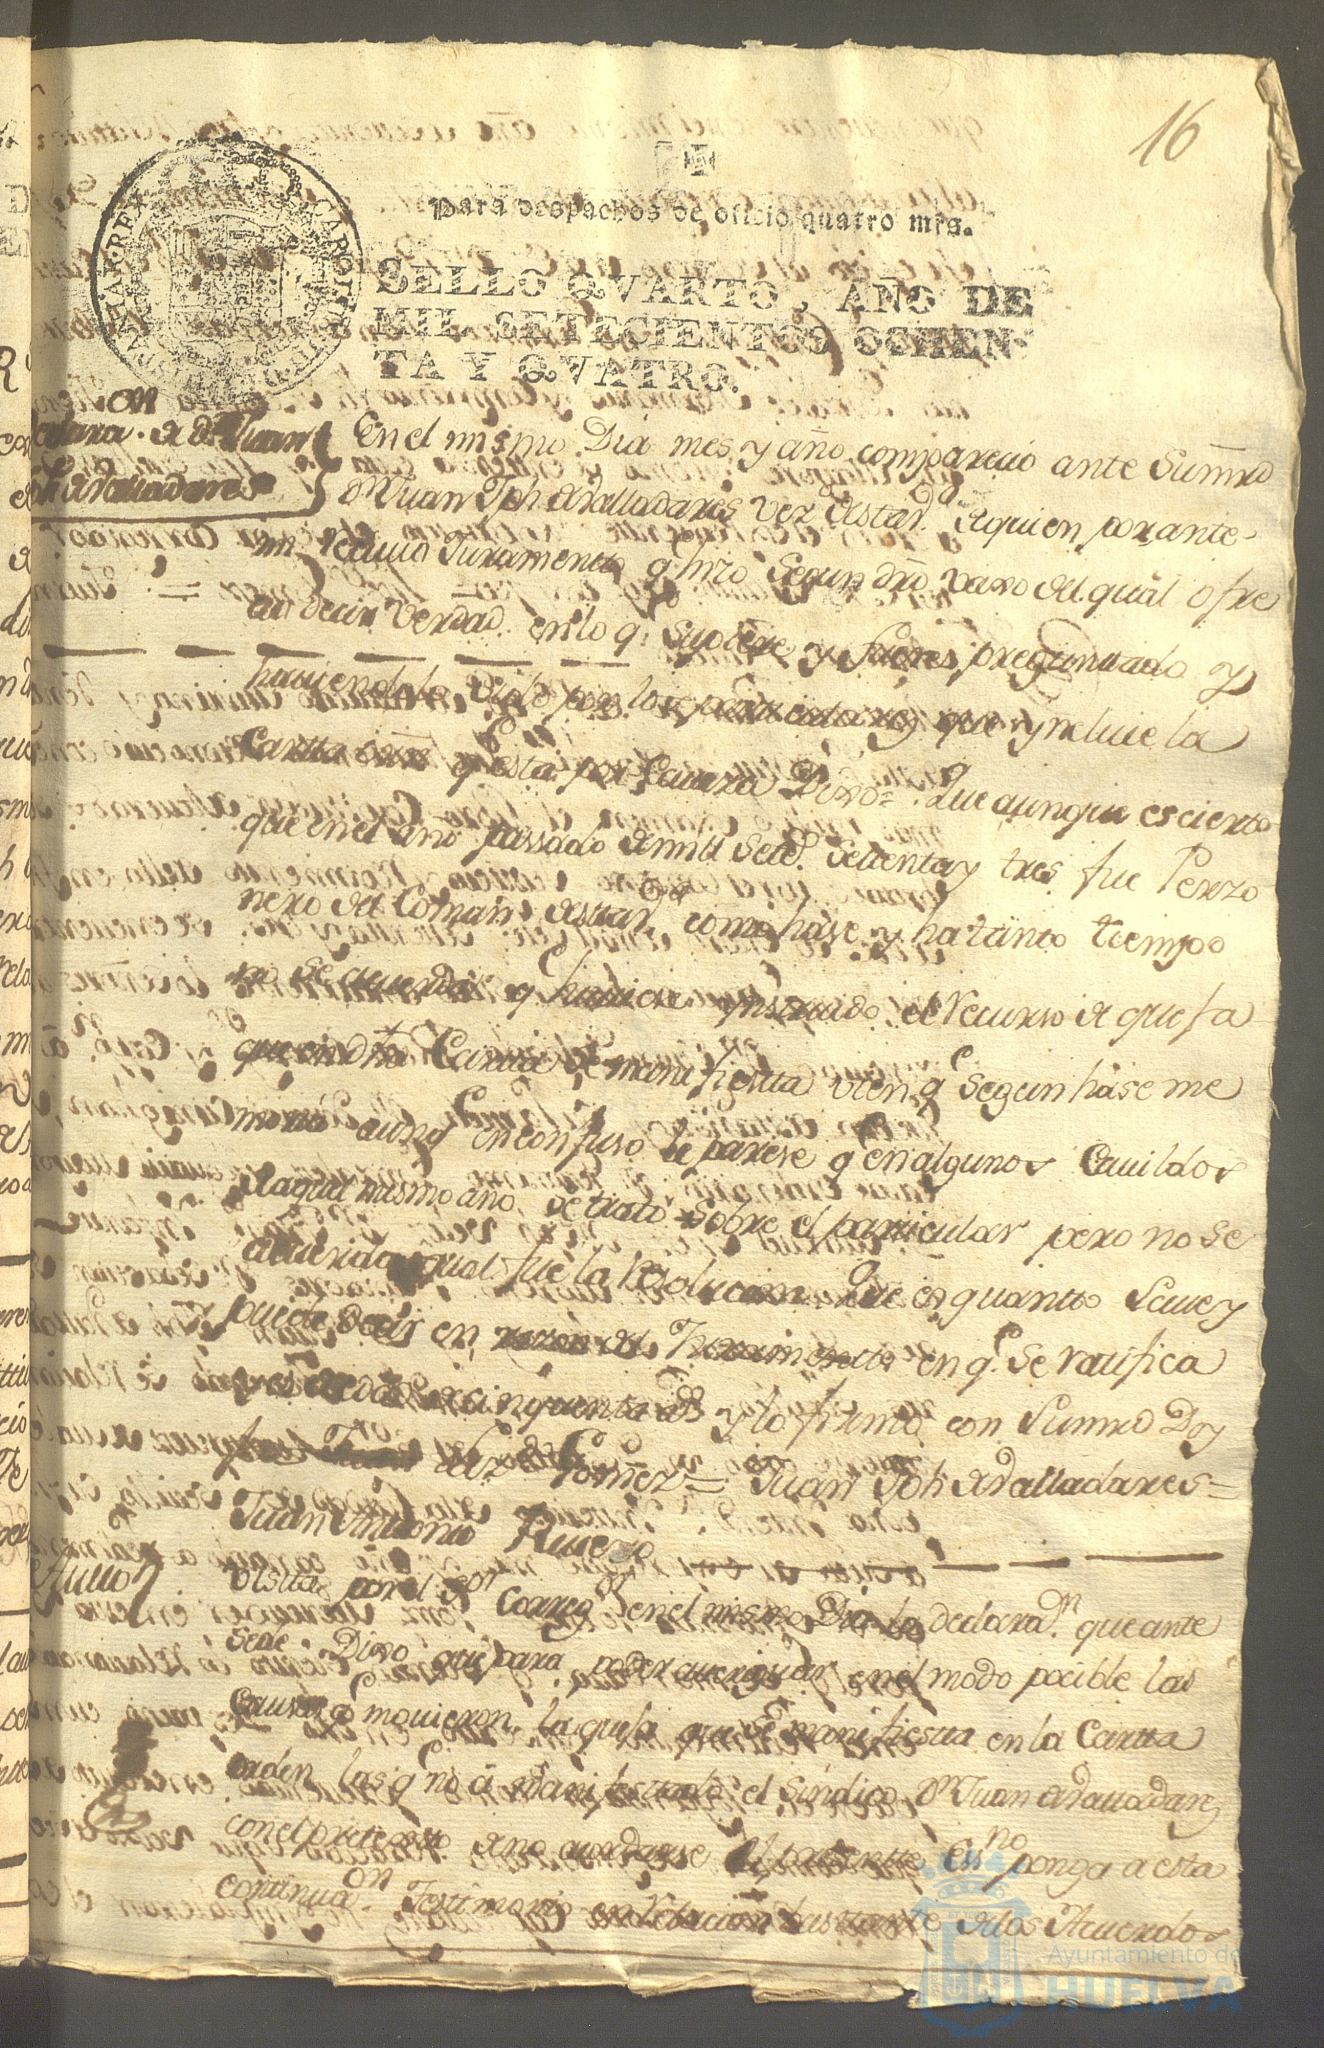 16
Para despachos de oficio quatro mrs.
SELLO QVARTO, AÑO DE
MIL SETECIENTOS OCHEN-
TA Y QVATRO.
CAROLVS III
HISPANIAR. REX
on
Declara. de Dn Juan
Jph de Valladares
En el mismo Dia mes y año comparecio ante Sumrd
Dn Juan Jph de Valladares vez. de esta d. de quien por ante
mi recivio Juramento q hizo segun dro vaxo del qual ofre
cio decir verdad en lo q. supiere y fuere preguntado y
haviendolo sido por los particulares que yncluie la
Cartta orn q esta por Caveza Dixo= Que aunque es cierto
que en el año passado de mill Sete. settenta y tres fue Perzo
nero del Comun de esta como hase ya tanto tiempo
no se acuerda q huviese ynstruido el recurso de quexa
que en dha Cartta se manifiestta vien q. segun hase me
moria aunq en confuso le parese q en algunos Cavildos
de aquel mismo año se trato sobre el particular pero no se
acuerda qual fue la resolucion Que es quantto save y
puede decir en razon del Juramentto en q. se ratifica
es de edad de cinquenta as y lo firmo con Sumrd Doy
fee Gomez= Juan Jph de Valladares=
Juan Antonio
Autto
Vistta por el Sor Corregor en el mismo Dia la declaran. que ante
sede Dixo que para poder averiguar en el modo posible las
causas q movieron la quexa que se manifiestta en la Cartta
orden las q no á manifestado el Sindico Dn Juan de Valladares
con el pretexto de no acordarse el presentte Essno ponga a esta
continuaon Testimonio en relacion bastante de los Acuerdos
Ayuntamiento de
HUELVA